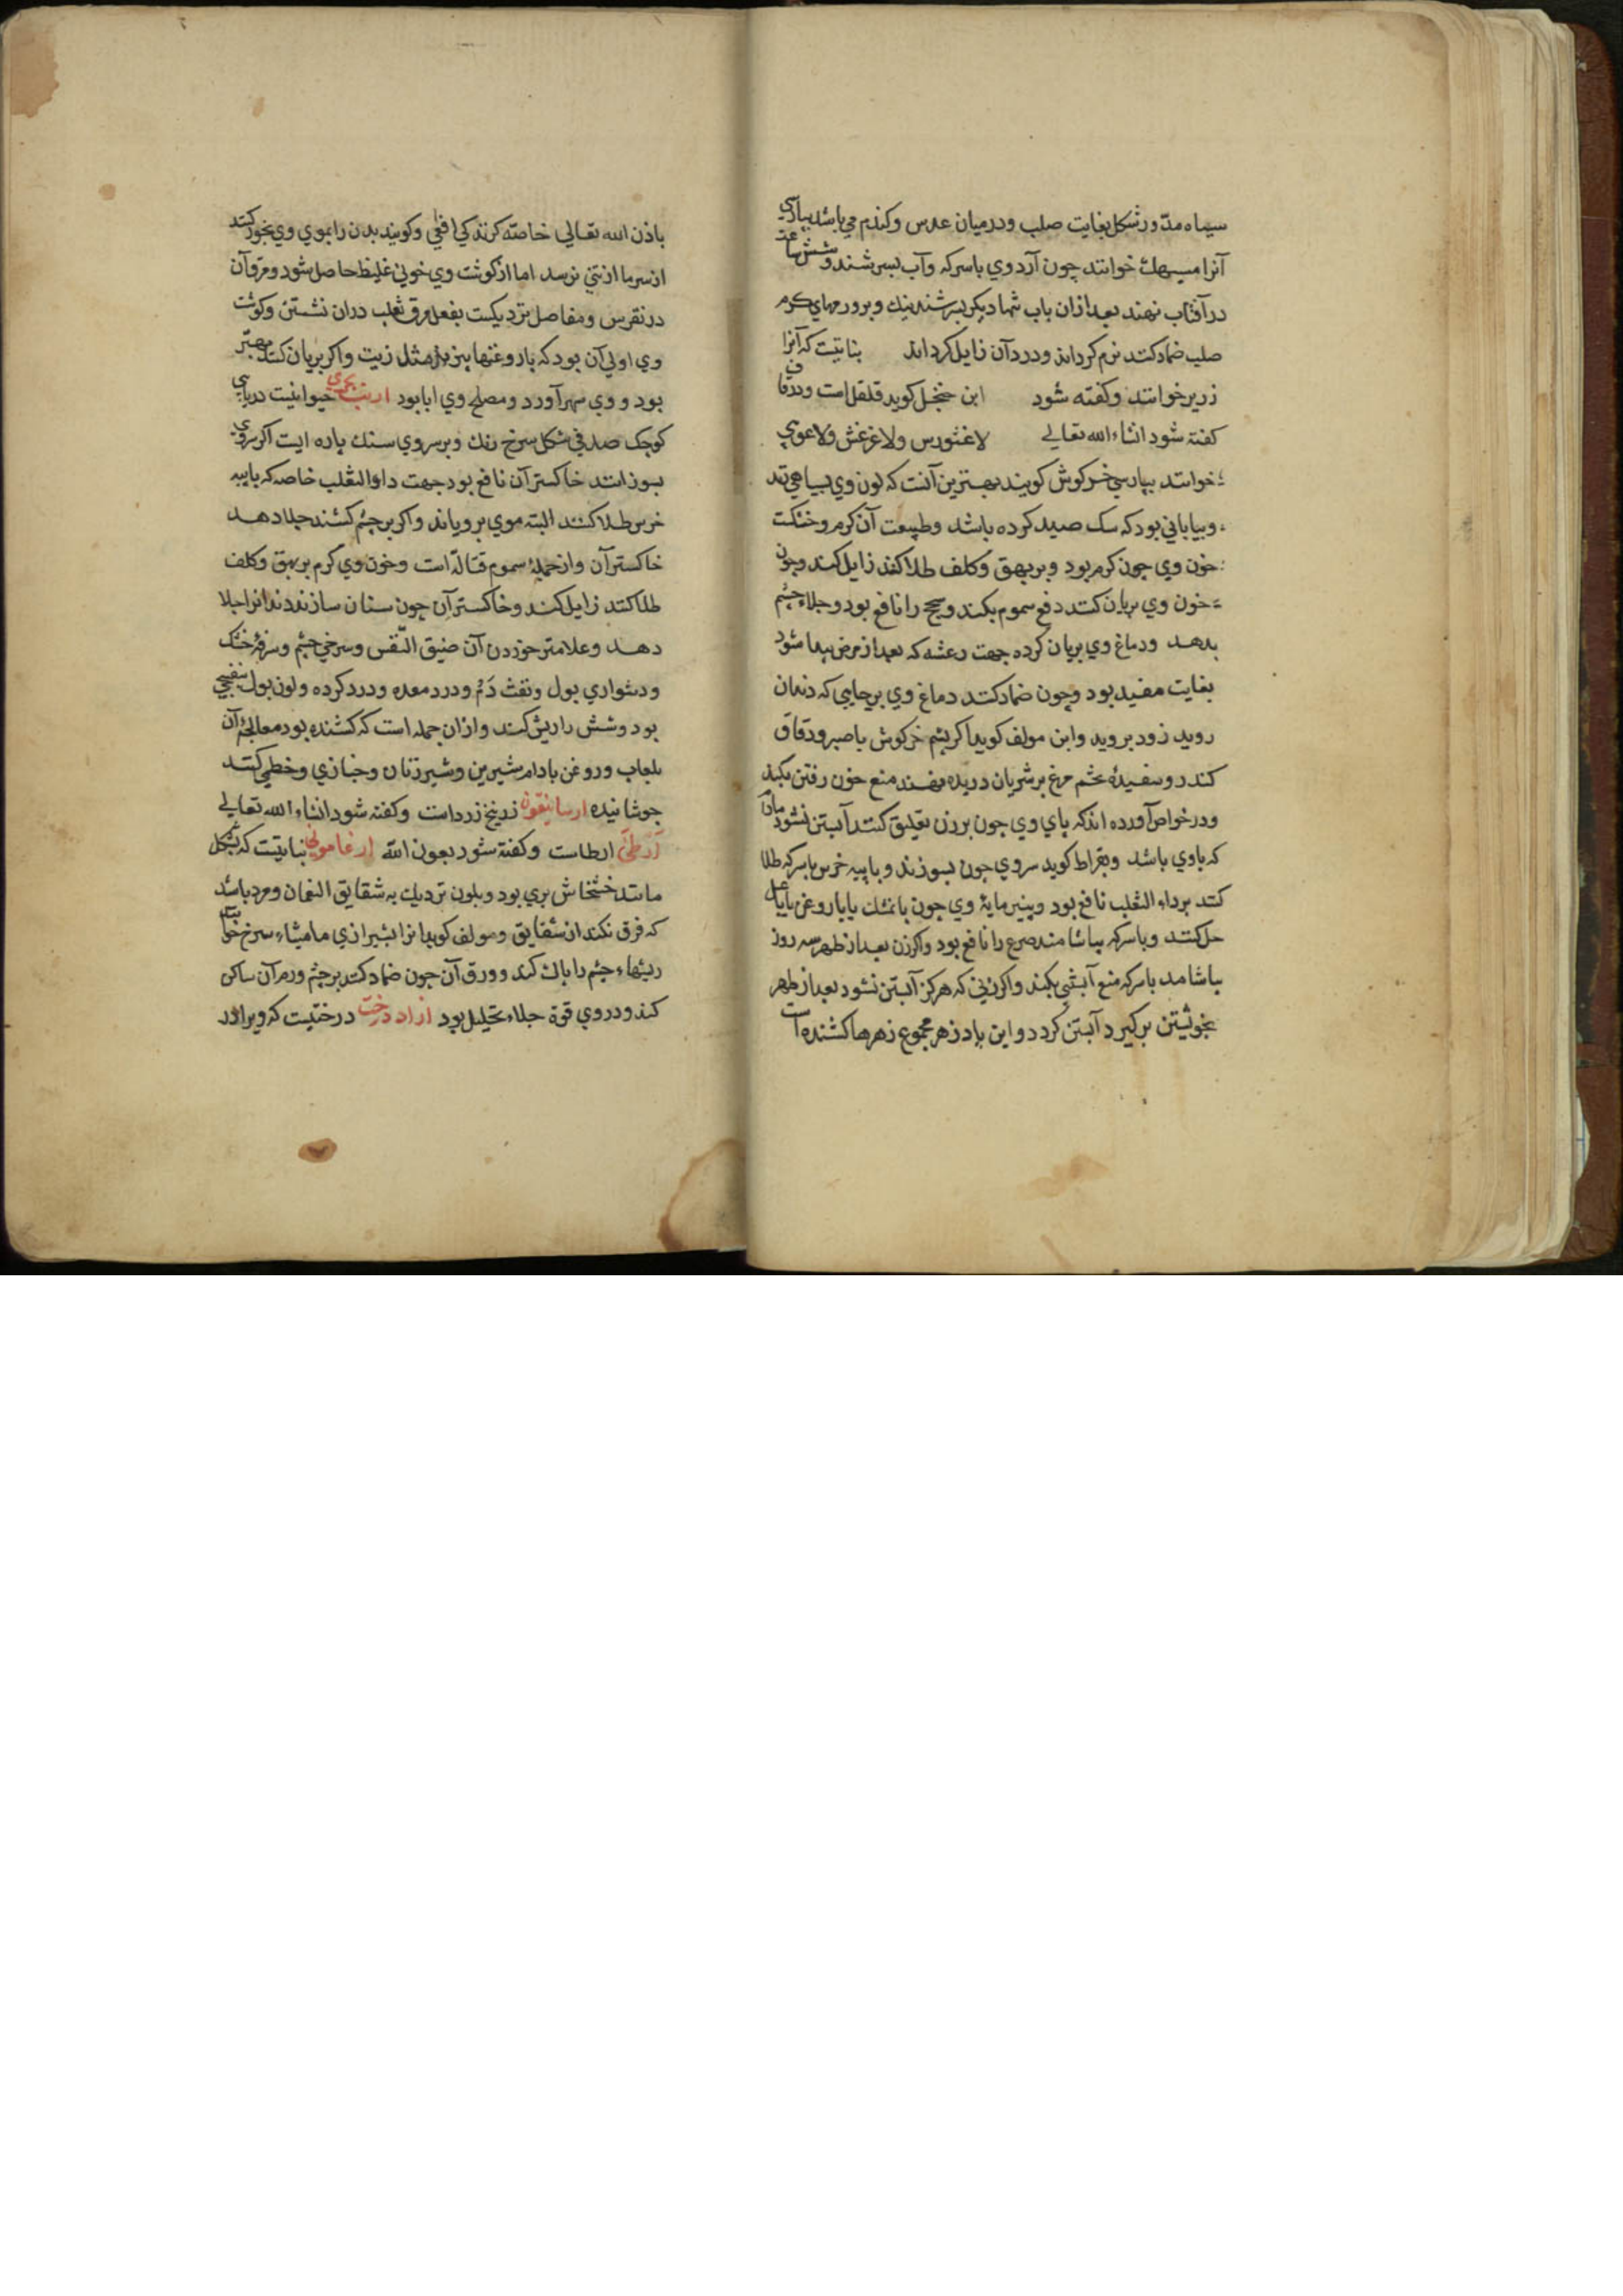 سیاه مدّور شکل بغایت صلب ودرمیان عدس وکندم می باشد بپارسی
آنرا میسهك خوانند چون آرد وي باسرکه وآب بسرشند وشش ساعت
در آفتاب نهند بعد ازان باب شما دیکر بسرشند نیك وبرورمهاي کرم
صلب ضماد کنند نرم کرداند ودرد آن زایل کرداند نباتیست که آنرا
زریر خوانند وکفته شود ابن کوید قلقل است ودر قاف
کفته شود انشاء الله تعالی لاغثورس ولاغرغش ولاغوي
خوانند بپارسی خرکوش کویند بهترین آنست که لون وي بسیاهي
وبیاباني بود که سک صید کرده باشد وطبیعت آن کرم وخشکست
خون وي چون کرم بود وبر بهق وکلف طلا کنند زایل کند وچون
خون وي بریان کنند دفع سموم بکند وسحج را نافع بود وجلاء چشم
بدهد ودماغ وي بریان کرده جهت رعشه که بعد از مرض پیدا شود
بغایت مفید بود وچون ضماد کنند دماغ وي برجایي که دندان
روید زود بروید وابن مولف کوید اکر پشم خرکوش باصبر ودقاق
کندر وسفیدۀ تخم مرغ بر شریان دریده نهند منع خون رفتن بکند
ودر خواص آورده اند که پاي وي چون برزن تعلیق کنند آبستن نشود مادام
که باوي باشد وبقراط کوید سروي چون بسوزند وباپیه خرس باسرکه طلا
کنند برداء الثعلب نافع بود وپنیرمایۀ وي چون بانمک یا باروغن یا باعسل
حل کنند وباسرکه بیاشامند صرع را نافع بود واکر زن بعد از طهر سه روز
بیاشامد باسرکه منع آبستني بکند واکر زني که هرکز آبستن نشود بعد از طهر
بخویشتن برکیرد آبستن کردد واین پادزهر مجموع زهرها کشنده است
باذن الله تعالی خاصّه کزندکي افعي وکویند بدن را بموي وي بخور کنند
ازسرما ازیتي نرسد اما ازکوشت وي خوني غلیظ حاصل شود ومرق آن
در نقرس ومفاصل نزدیکست بفعل مرق ثعلب دران نشستن وکوشت
وي اولی آن بود که باروغنها بپزند مثل زیت واکر بریان کنند بهتر
بود و وي سهر آورد ومصلح وي ابا بود ارنب بحري حیوانیست دریایي
کوچک صدفي شکل سرخ رنك وبرسروي سنك پاره ایست اکر سروي
بسوزانند خاکستر آن نافع بود جهت داء الثعلب خاصه که باپیه
خرس طلا کنند البته موي برویاند واکر بر چشم کشند جلا دهد
خاکستر آن واز جملۀ سموم قتاله است وخون وي کرم بر بهق وکلف
طلا کنند زایل کند وخاکستر آن چون سنان سازند دندانرا جلا
دهد وعلامت خوردن آن ضیق النّفس وسرخي چشم وسرفۀ خشک
ودشواري بول ونفث دَم ودرد معده ودرد کرده ولون بول بنفسجي
بود وشش را ریش کند وازان جمله است که کشنده بود معالجۀ آن
بلعاب وروغن بادام شیرین وشیر زنان وخبازي وخطمي کنند
جوشانیده ارسانیقون زرنیخ زرد است وکفته شود انشاء الله تعالی
ارطي ارطاست وکفته شود بعون الله ارغاموني نباتیست که بشکل
مانند خشخاش بري بود وبلون نزدیك به شقایق النعمان ومرد باشد
که فرق نکند از شقایق ومولف کوید آنرا بشیرازي مامیثاء سرخ خوانند
ریشهاء چشم را پاك کند وورق آن چون ضماد کنند بر چشم ورم آن ساکن
کند ودروي قوة جلاء وتحلیل بود ازاد درخت درختیست که ویرا در